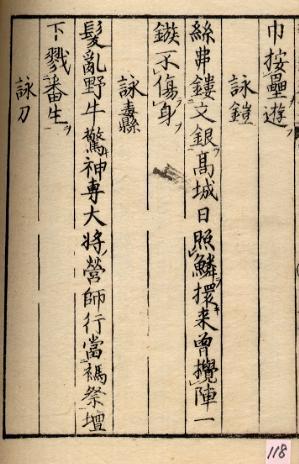 巾按壘遊
詠鎧
絲弗鏤文銀高城日照鱗擐来曾攪陣一
鏃不傷身
詠毒縣
髮亂野牛驚神専大将營師行當禡祭壇
下戮畨生
詠刀
118